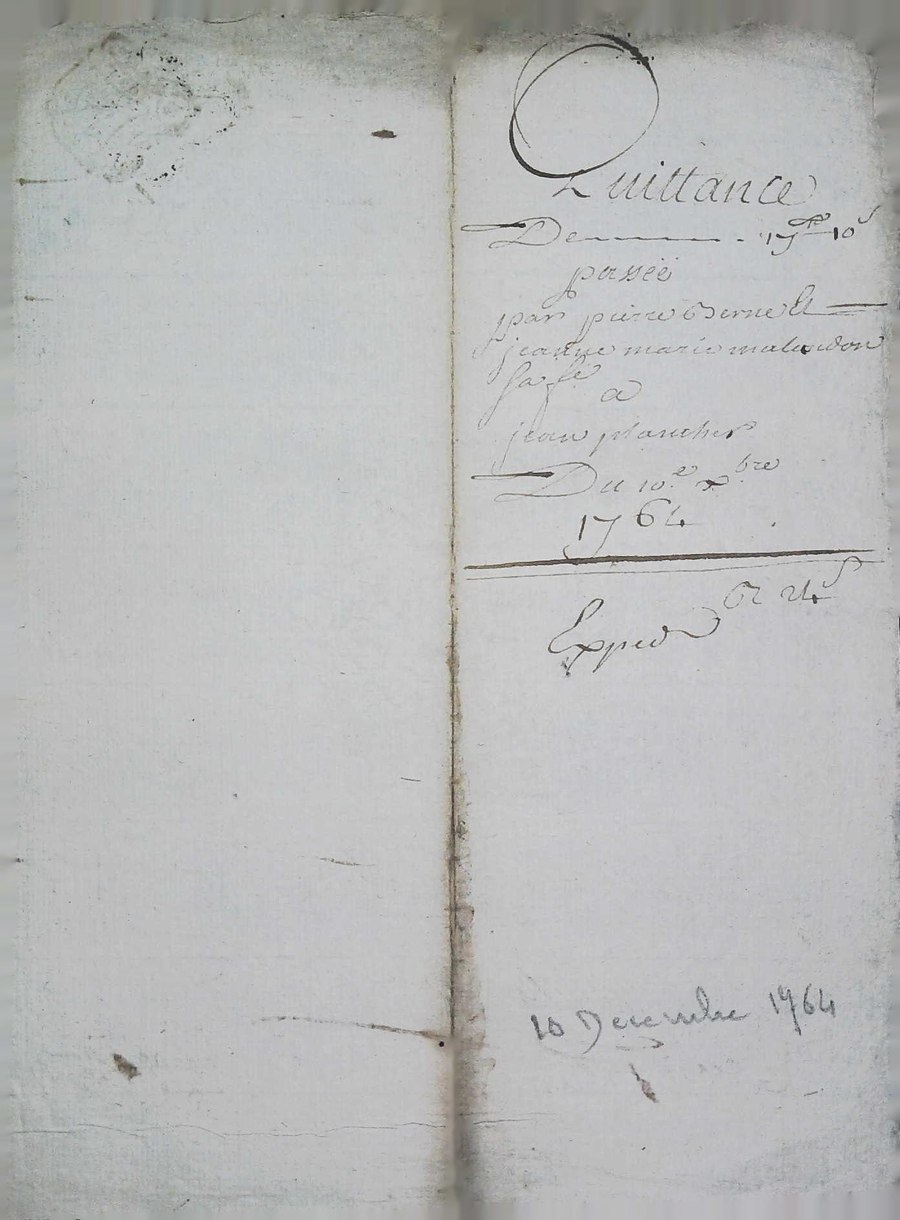 Quittance
De 17 ₶ 10 s
passée
par pierre Berne Et
jeanne marie malardon
sa fe a
jean plancher
Du 10.e xbre
1764
Exped 24 s
10 Decembre 1764